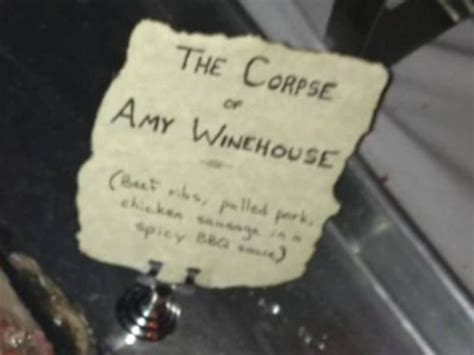 THE CORPSE
OF
AMY WINEHOUSE
(Beef ribs, pulled pork,
chicken sausage in a
spicy BBQ sauce)